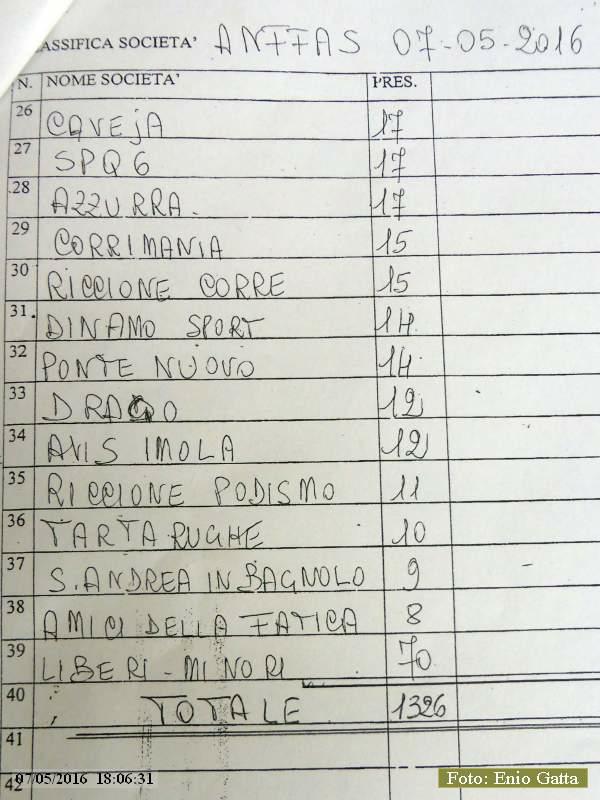 CLASSIFICA SOCIETA' ANFFAS 07-05-2016
N. NOME SOCIETA' PRES.
26 CAVEJA 17
27 SPQ6 17
28 AZZURRA. 17
29 CORRIMANIA 15
30 RICCIONE CORRE 15
31. DINAMO SPORT 14
32 PONTE NUOVO 14
33 DRAGO 12
34 AVIS IMOLA 12
35 RICCIONE PODISMO 11
36 TARTARUGHE 10
37 S. ANDREA IN BAGNOLO 9
38 AMICI DELLA FATICA 8
39 LIBERI - MINORI 70
40 TOTALE 1326
41
42
07/05/2016 18:06:31
Foto: Enio Gatta